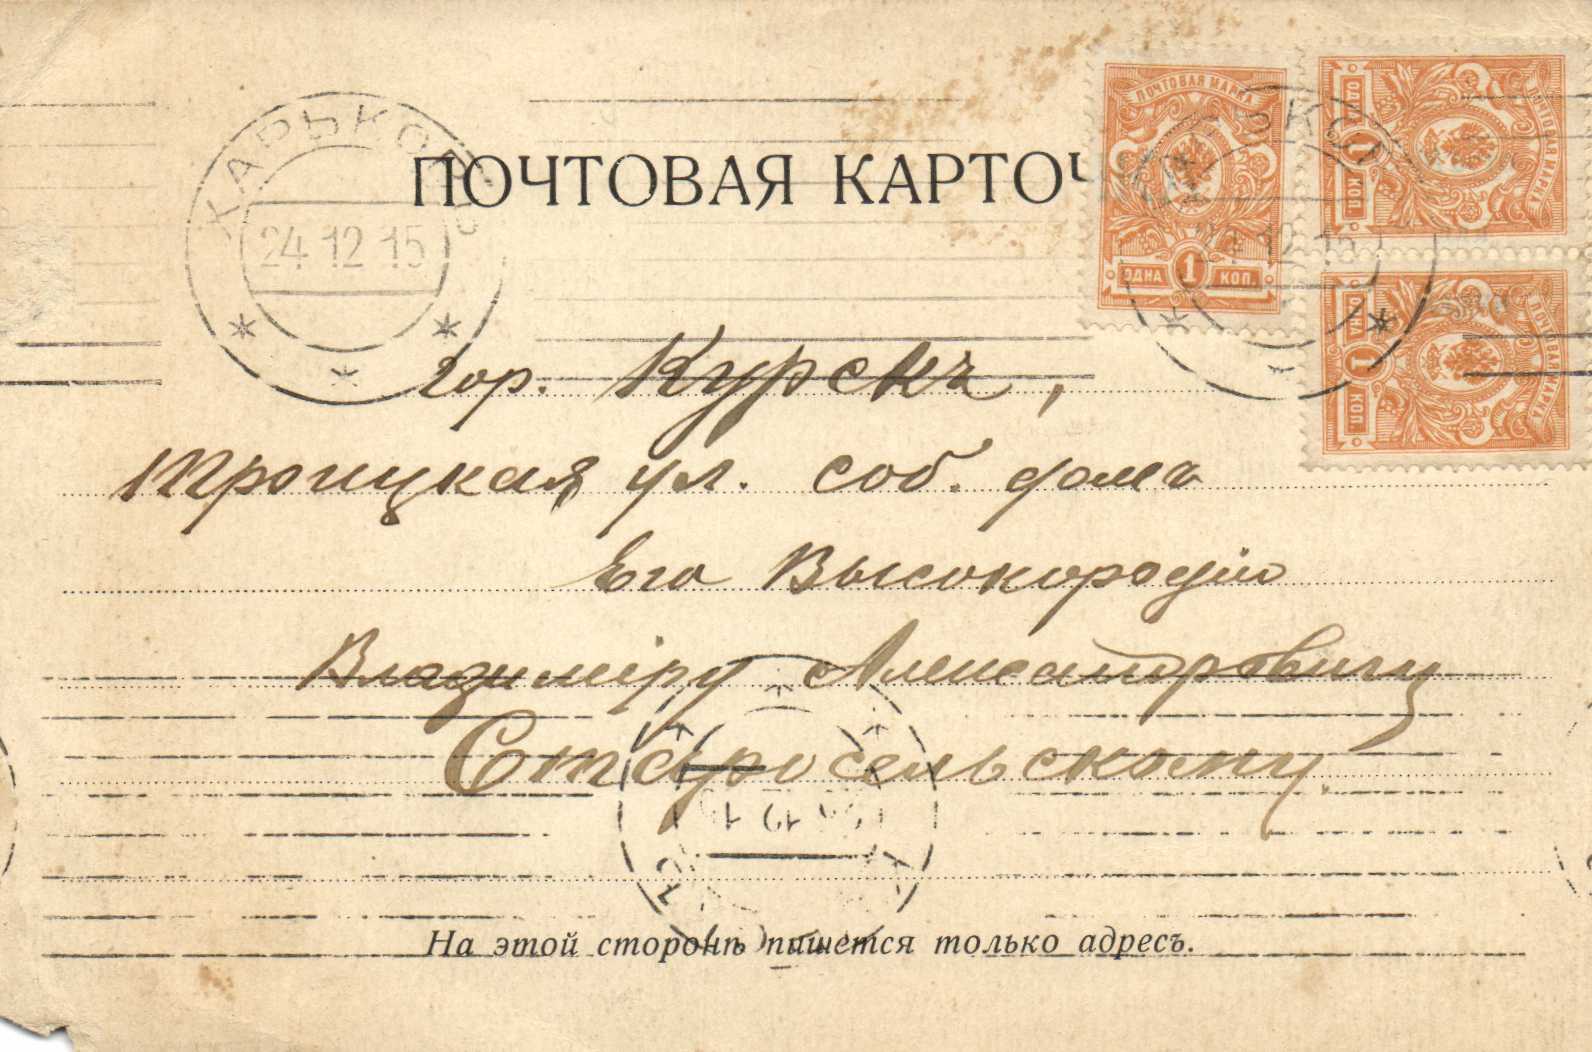 ПОЧТОВАЯ КАРТОЧ
ХАРЬКОВЪ
24 12 15
ПОЧТОВАЯ МАРКА
ОДНА 1 КОП.
ПОЧТОВАЯ МАРКА
ОДНА 1 КОП.
ПОЧТОВАЯ МАРКА
ОДНА 1 КОП.
гор. Курскъ,
Троицкая ул. соб. домъ
Его Высокородію
Владиміру Александровичу
Старосельскому.
На этой сторонѣ пишется только адресъ.